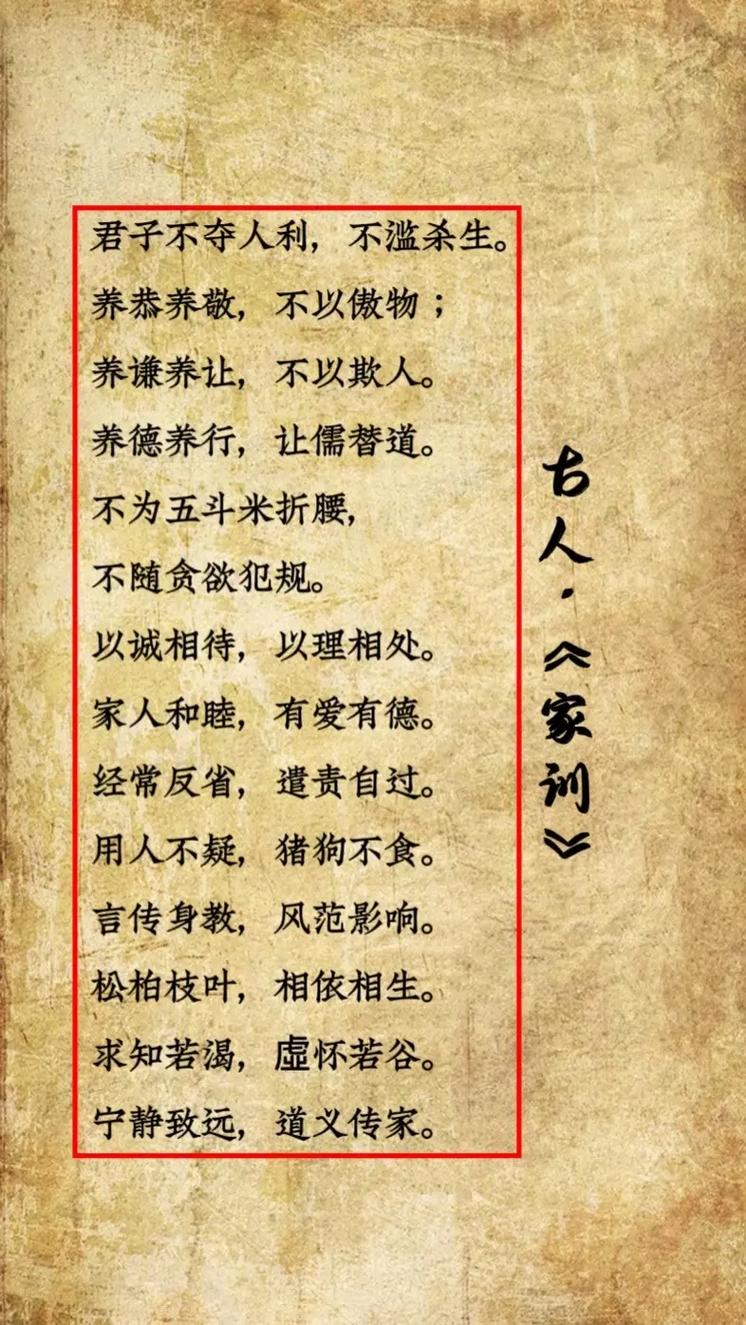 君子不夺人利，不滥杀生。
养恭养敬，不以傲物；
养谦养让，不以欺人。
养德养行，让儒替道。
不为五斗米折腰，
不随贪欲犯规。
以诚相待，以理相处。
家人和睦，有爱有德。
经常反省，遣责自过。
用人不疑，猪狗不食。
言传身教，风范影响。
松柏枝叶，相依相生。
求知若渴，虚怀若谷。
宁静致远，道义传家。
古人·《家训》